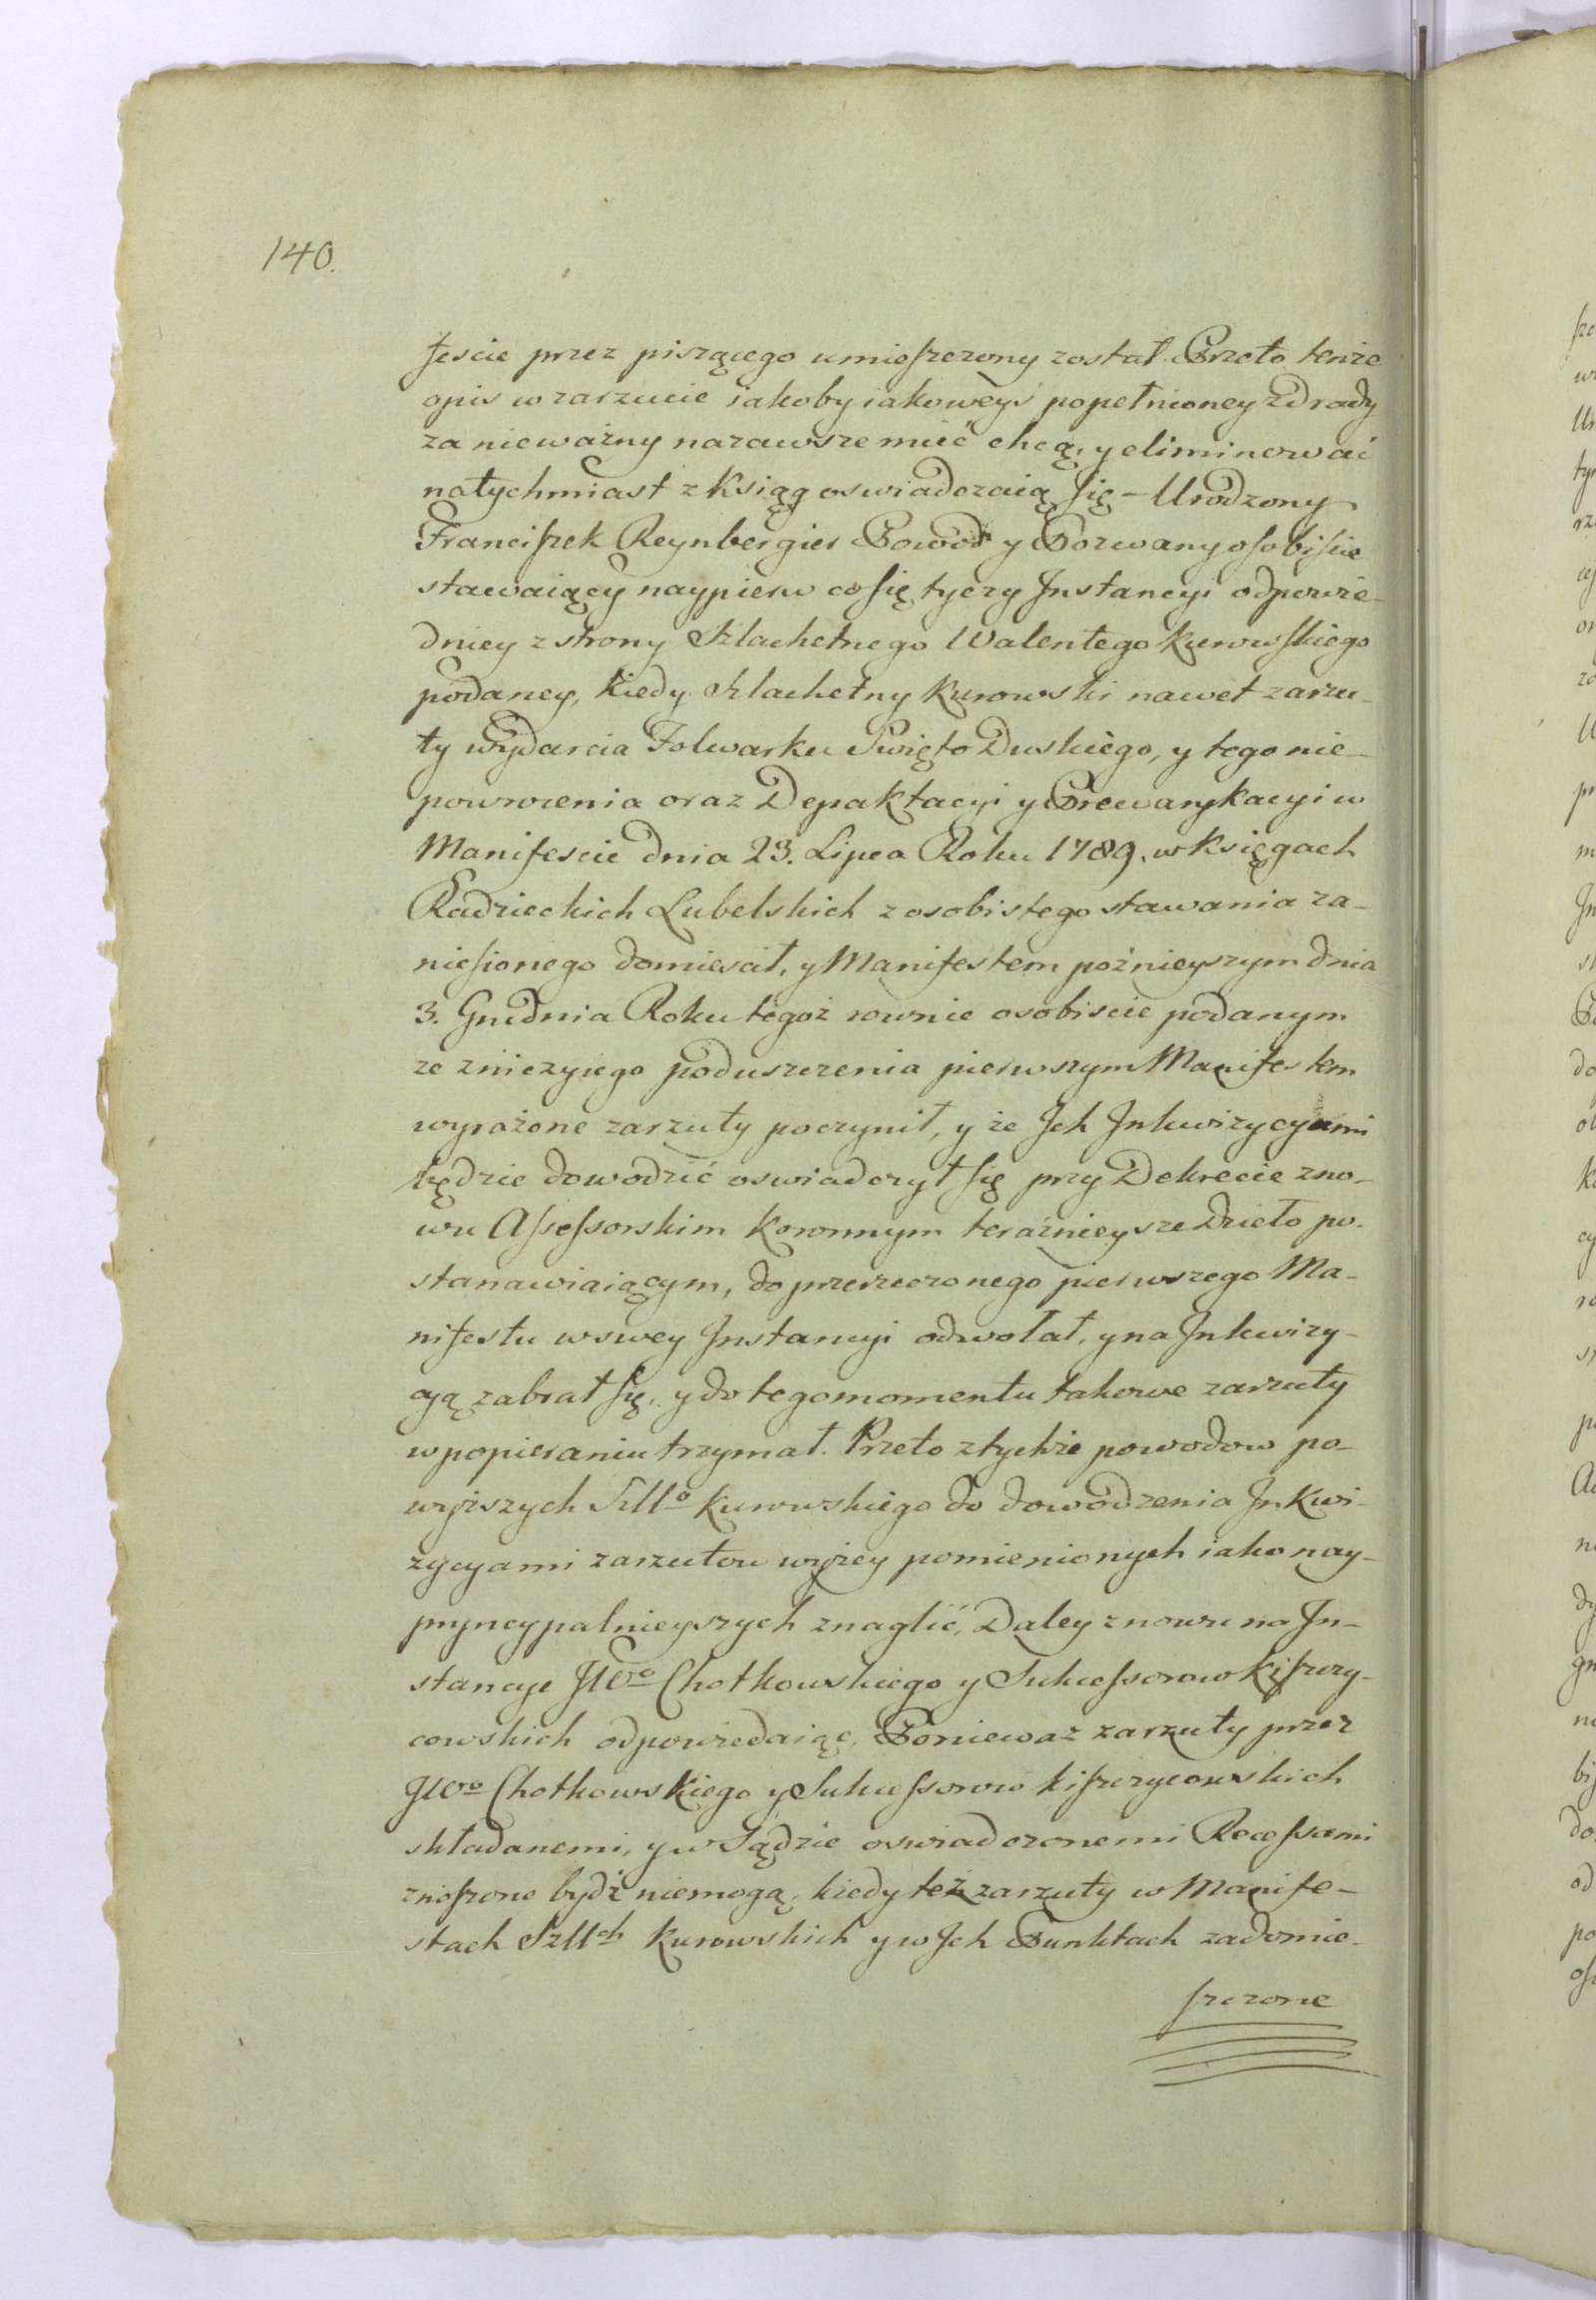 140.
feście przez piszącego umieszczony został. Przeto tenże
opis w zarzucie iakoby iakoweyś popełnioney Zdrady
za nieważny nazawsze mieć chcą, y eliminować
natychmiast z Ksiąg oswiadczaią się – Urodzony
Franciszek Reynbergier Powod y Pozwany osobiście
stawaiący naypierw co się tyczy Instancyi odpowie-
dniey z strony Szlachetnego Walentego Kurowskiego
podaney, Kiedy Szlachetny Kurowski nawet zarzu-
ty wydarcia Folwarku Święto Duskiego, y tego nie-
powrocenia oraz Depaktacyi y Prewarykacyi w
Manifescie dnia 23. Lipca Roku 1789. w księgach
Radzieckich Lubelskich z osobistego stawania za-
niesionego domieścił, y Manifestem poźnieyszym dnia
3. Grudnia Roku tegoż rownie osobiscie podanym
ze z niczyiego poduszczenia pierwszym Manifestem
wyrażone zarzuty poczynił, y że Ich Inkwizycyami
będzie dowodzić oswiadczył się przy Dekrecie zno-
wu Assessorskim Koronnym teraźnieysze Dzieło po-
stanawiaiącym, do przerzeczonego pierwszego Ma-
nifestu w swey Instancyi odwołał, y na Inkwizy-
cyą zabrał się, y do tego momentu takowe zarzuty
w popieraniu trzymał. Przeto z tychże powodow po-
wyższych Szllo Kurowskiego do dowodzenia Inkwi-
zycyami zarzutow wyżey pomienionych iako nay-
pryncypalnieyszych znaglić, Daley znowu na In-
stancye JWo Chotkowskiego y Sukcessorow Kiszczy-
cowskich odpowiedaiąc, Ponieważ zarzuty przez
JWo Chotkowskiego y Sukcessorow kiszczycowskich
składanemi, y w Sądzie oswiadczonemi Recessami
znoszone bydź niemogą, kiedy też zarzuty w Manife-
stach Szllch Kurowskich y w Ich Punktach zadomie-
szczone